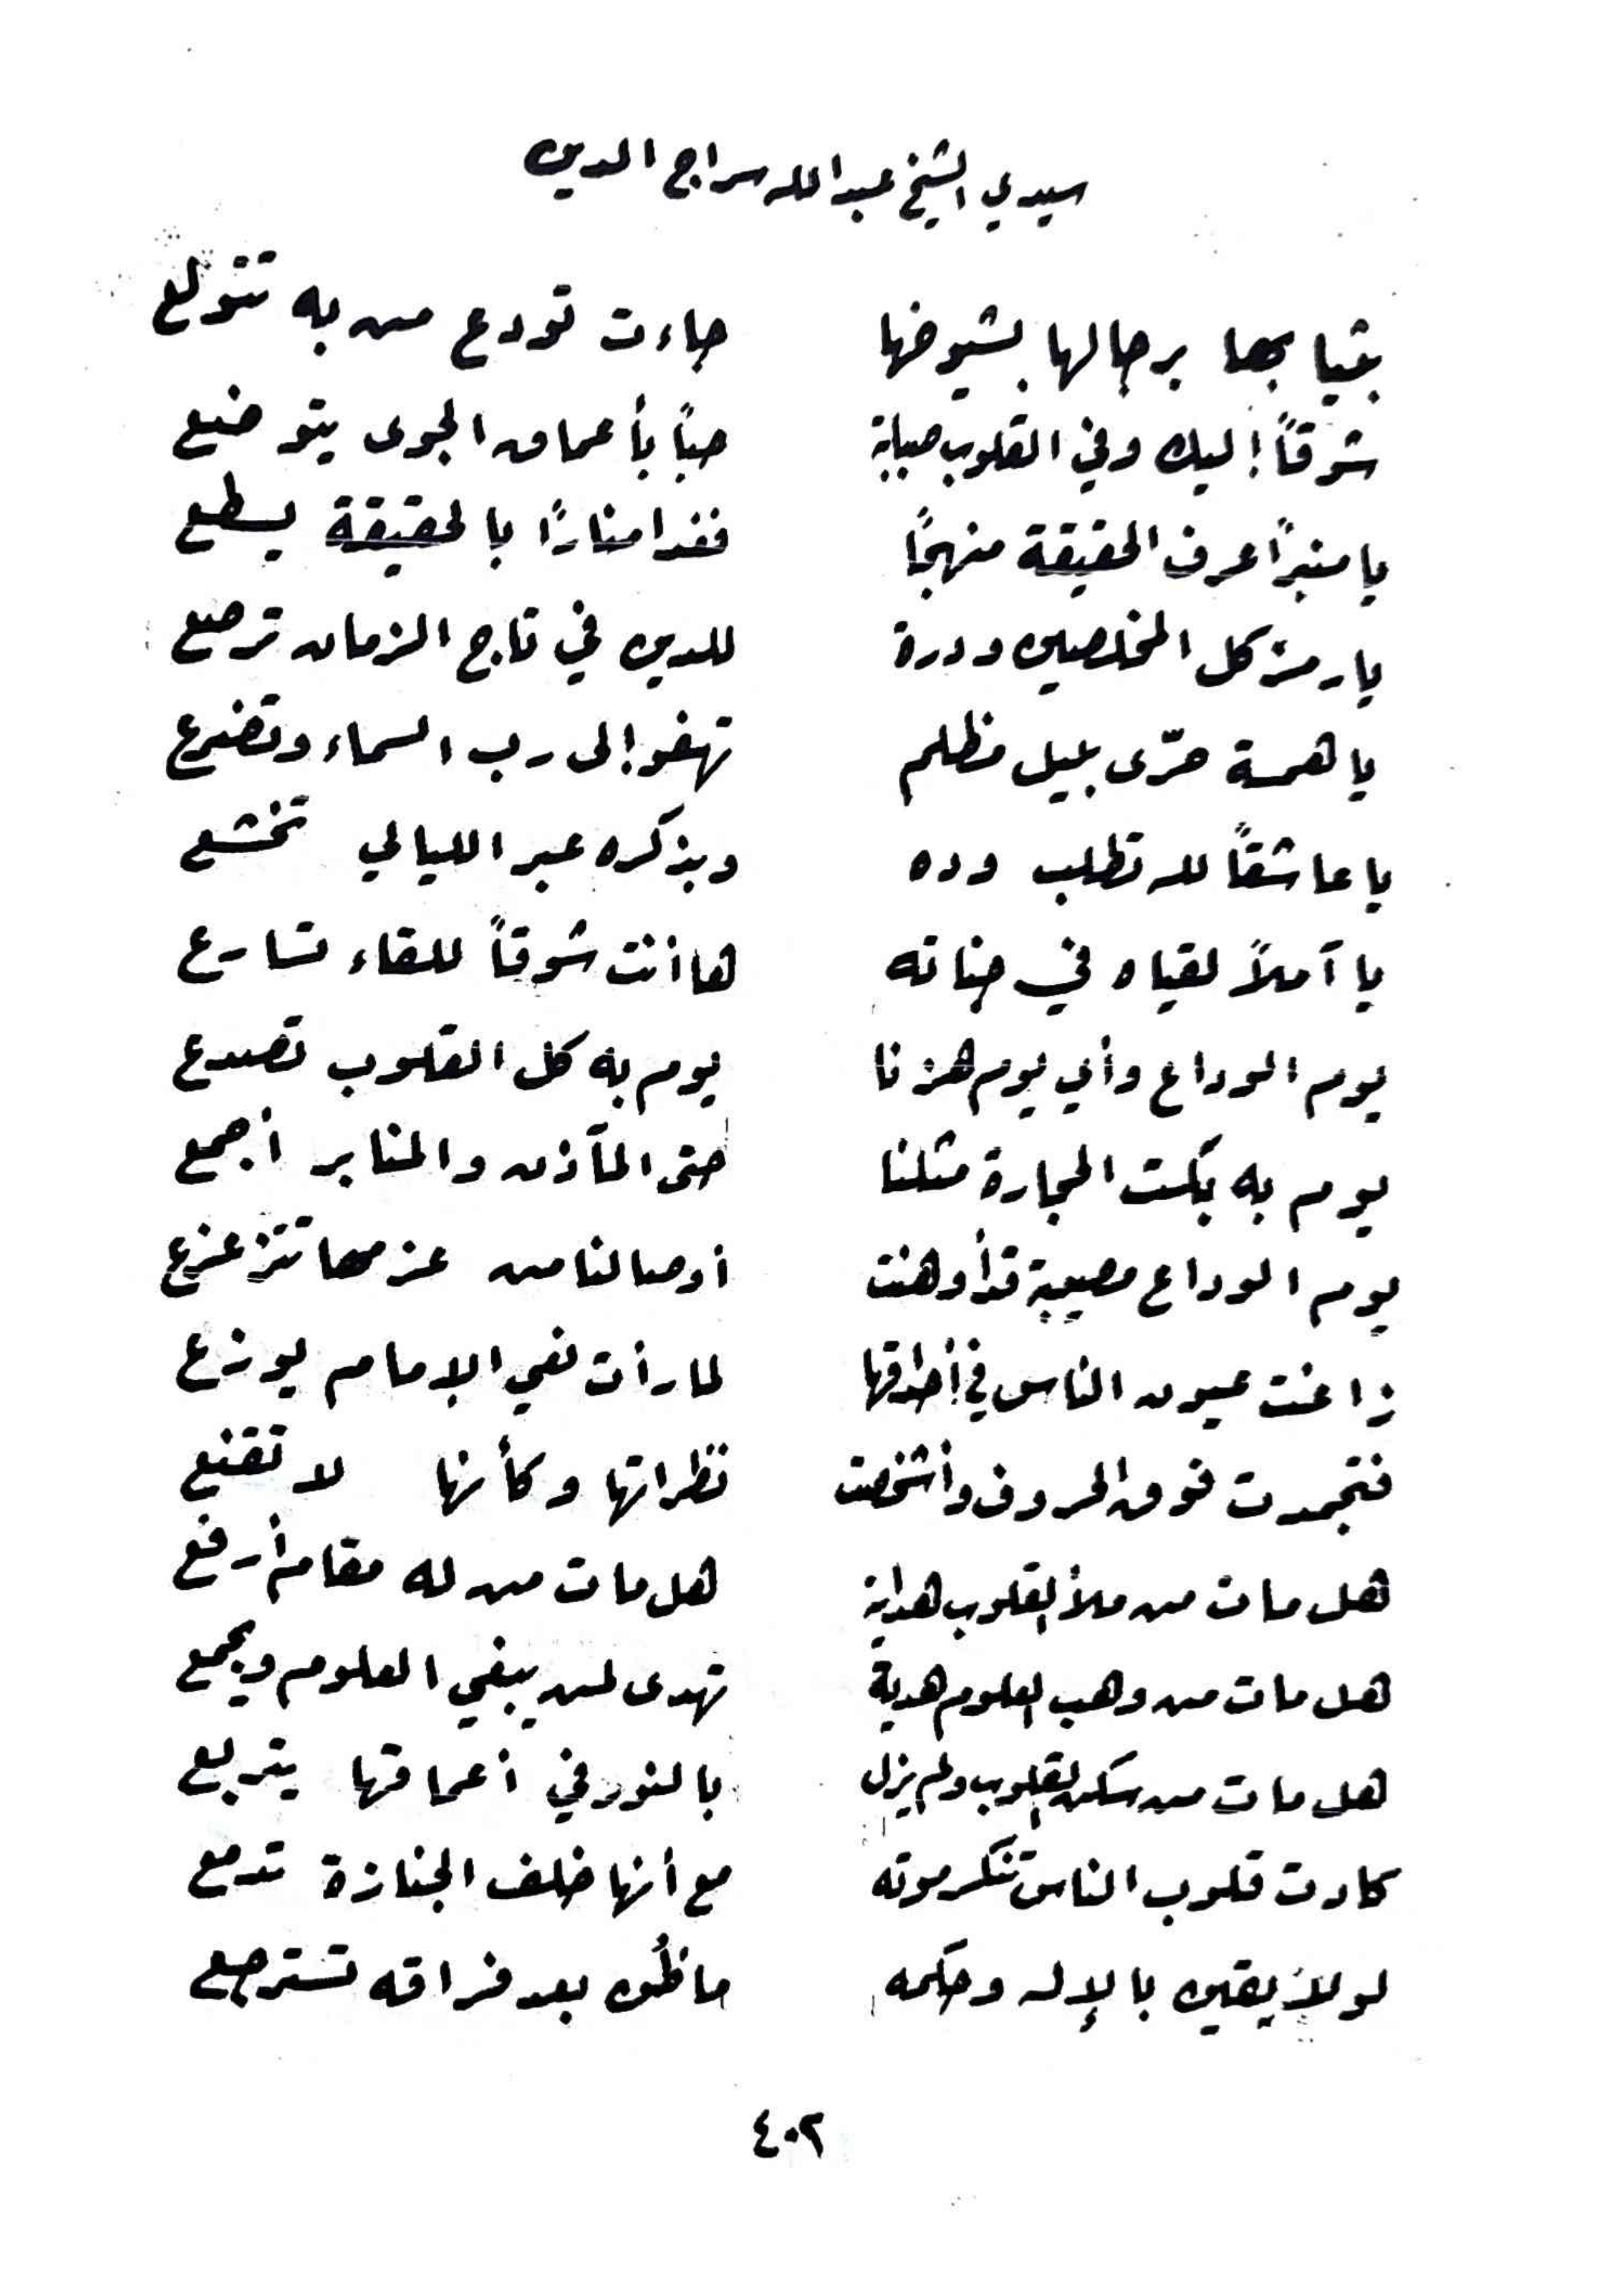 سيدي الشيخ عبدالله سراج الدين
بشبابها برجالها بشيوخها    جاءت تودع من به تتولع
شوقاً إليك وفي القلوب صبابة    حباً بأعماق الجوى يتوضع
يا منبراً عرف الحقيقة منهجاً    فغدا منارًا بالحقيقة يسطع
يا رمز كل المخلصين ودرة    للدين في تاج الزمان ترصع
يا همسة حرّى بليل مظلم    تهفو إلى رب السماء وتضرع
يا عاشقاً لله تطلب وده    وبذكره عبر الليالي تخشع
يا آملاً لقياه في جناته    ها أنت شوقاً للقاء تسارع
يوم الوداع وأي يوم هزنا    يوم به كل القلوب تصدع
يوم به بكت الحجارة مثلنا    حتى المآذن والمنابر أجمع
يوم الوداع مصيبة قد أوهنت    أوصالنا من عزمها تتزعزع
زاغت عيون الناس في أحداقها    لما رأت نعي الإمام يوزع
فتجمدت فوق الحروف وأشخصت    نظراتها وكأنها لا تقنع
هل مات من ملأ القلوب هداية    هل مات من له مقام أرفع
هل مات من وهب العلوم هدية    تهدى لمن يبغي العلوم ويجمع
هل مات من سكن القلوب ولم يزل    بالنور في أعماقها يتربع
كادت قلوب الناس تنكر موته    مع أنها خلف الجنازة تدمع
لولا يقين بالإله وحكمه    ما ظُن بعد فراقه تسترجع
٤٠٢